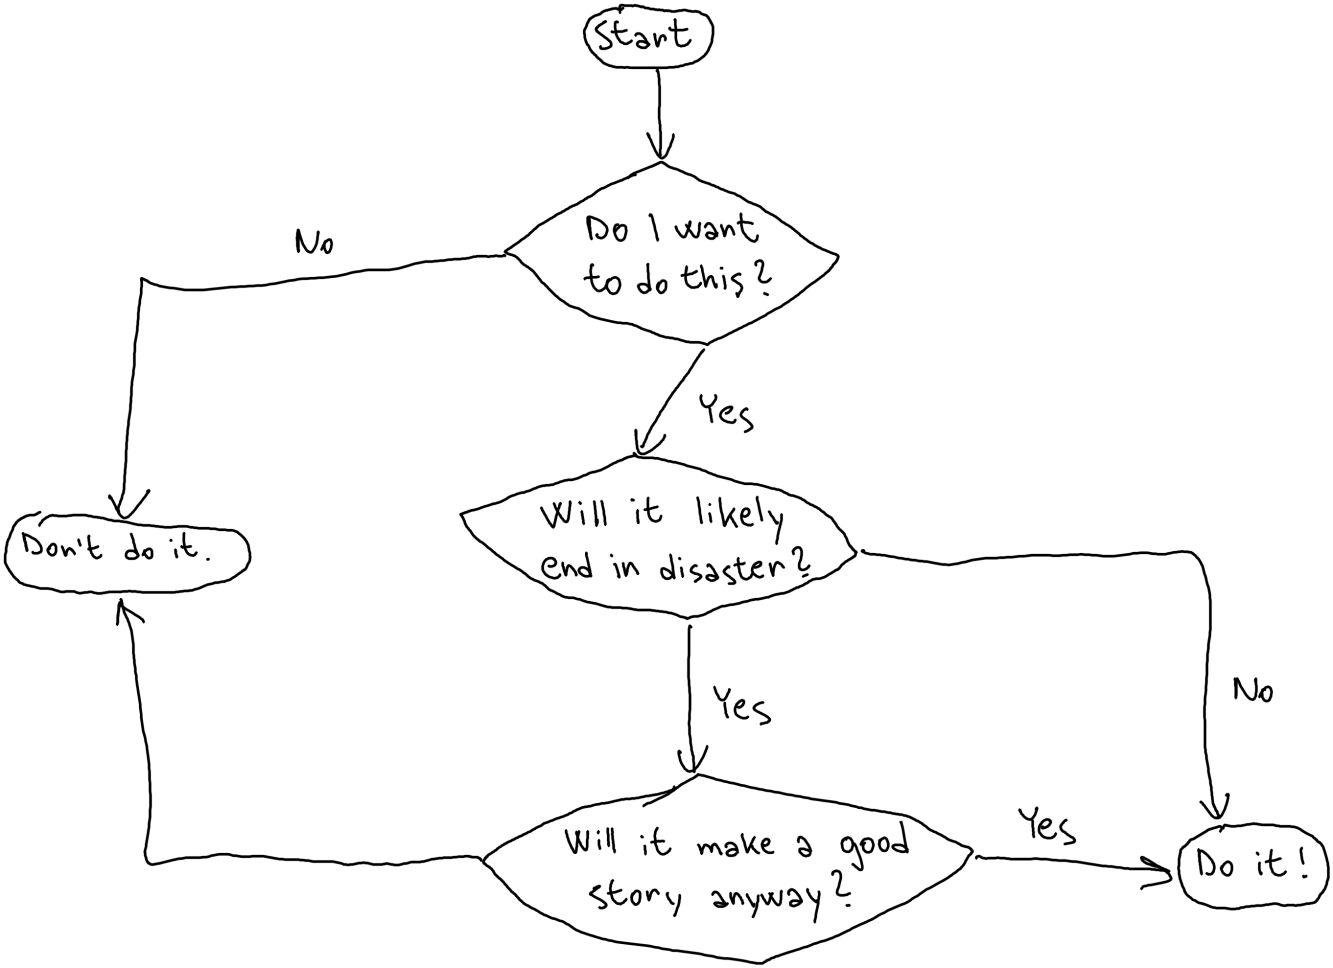 Start
Do I want
to do this?
No
Yes
Will it likely
end in disaster?
Don't do it.
No
Yes
Will it make a good
story anyway?
Yes
Do it!